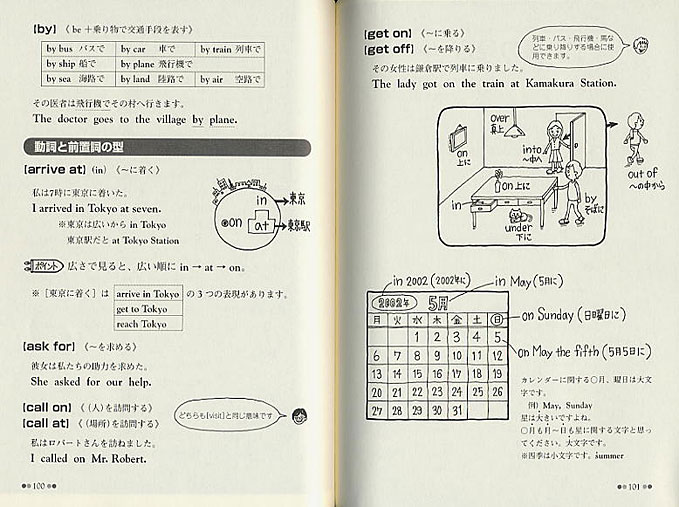 [by] 〈be＋乗り物で交通手段を表す〉
by bus バスで by car 車で by train 列車で
by ship 船で by plane 飛行機で
by sea 海路で by land 陸路で by air 空路で
その医者は飛行機でその村へ行きます。
The doctor goes to the village by plane.
動詞と前置詞の型
[arrive at] (in) 〈〜に着く〉
私は7時に東京に着いた。
I arrived in Tokyo at seven.
※東京は広いから in Tokyo
東京駅だと at Tokyo Station
in
東京
on
at
東京駅
ポイント 広さで見ると、広い順に in → at → on。
※［東京に着く］は arrive in Tokyo の3つの表現があります。
get to Tokyo
reach Tokyo
[ask for] 〈〜を求める〉
彼女は私たちの助力を求めた。
She asked for our help.
[call on] 〈(人)を訪問する〉
[call at] 〈(場所)を訪問する〉
どちらも[visit]と同じ意味です
私はロバートさんを訪ねました。
I called on Mr. Robert.
100
[get on] 〈〜に乗る〉
[get off] 〈〜を降りる〉
列車・バス・飛行機・馬な
どに乗り降りする場合に使
用できます。
その女性は鎌倉駅で列車に乗りました。
The lady got on the train at Kamakura Station.
over
真上
on
上に
into
〜中へ
out of
〜の中から
on 上に
in
by
そばに
under
下に
in 2002 (2002年に)
in May (5月に)
2002年 5月
on Sunday (日曜日に)
月 火 水 木 金 土 日
1 2 3 4 5
on May the fifth (5月5日に)
6 7 8 9 10 11 12
13 14 15 16 17 18 19
20 21 22 23 24 25 26
27 28 29 30 31
カレンダーに関する○月、曜日は大文
字です。
例) May, Sunday
星は大きいですよね。
○月も月〜日も星に関する文字と思っ
てください。大文字です。
※四季は小文字です。summer
101